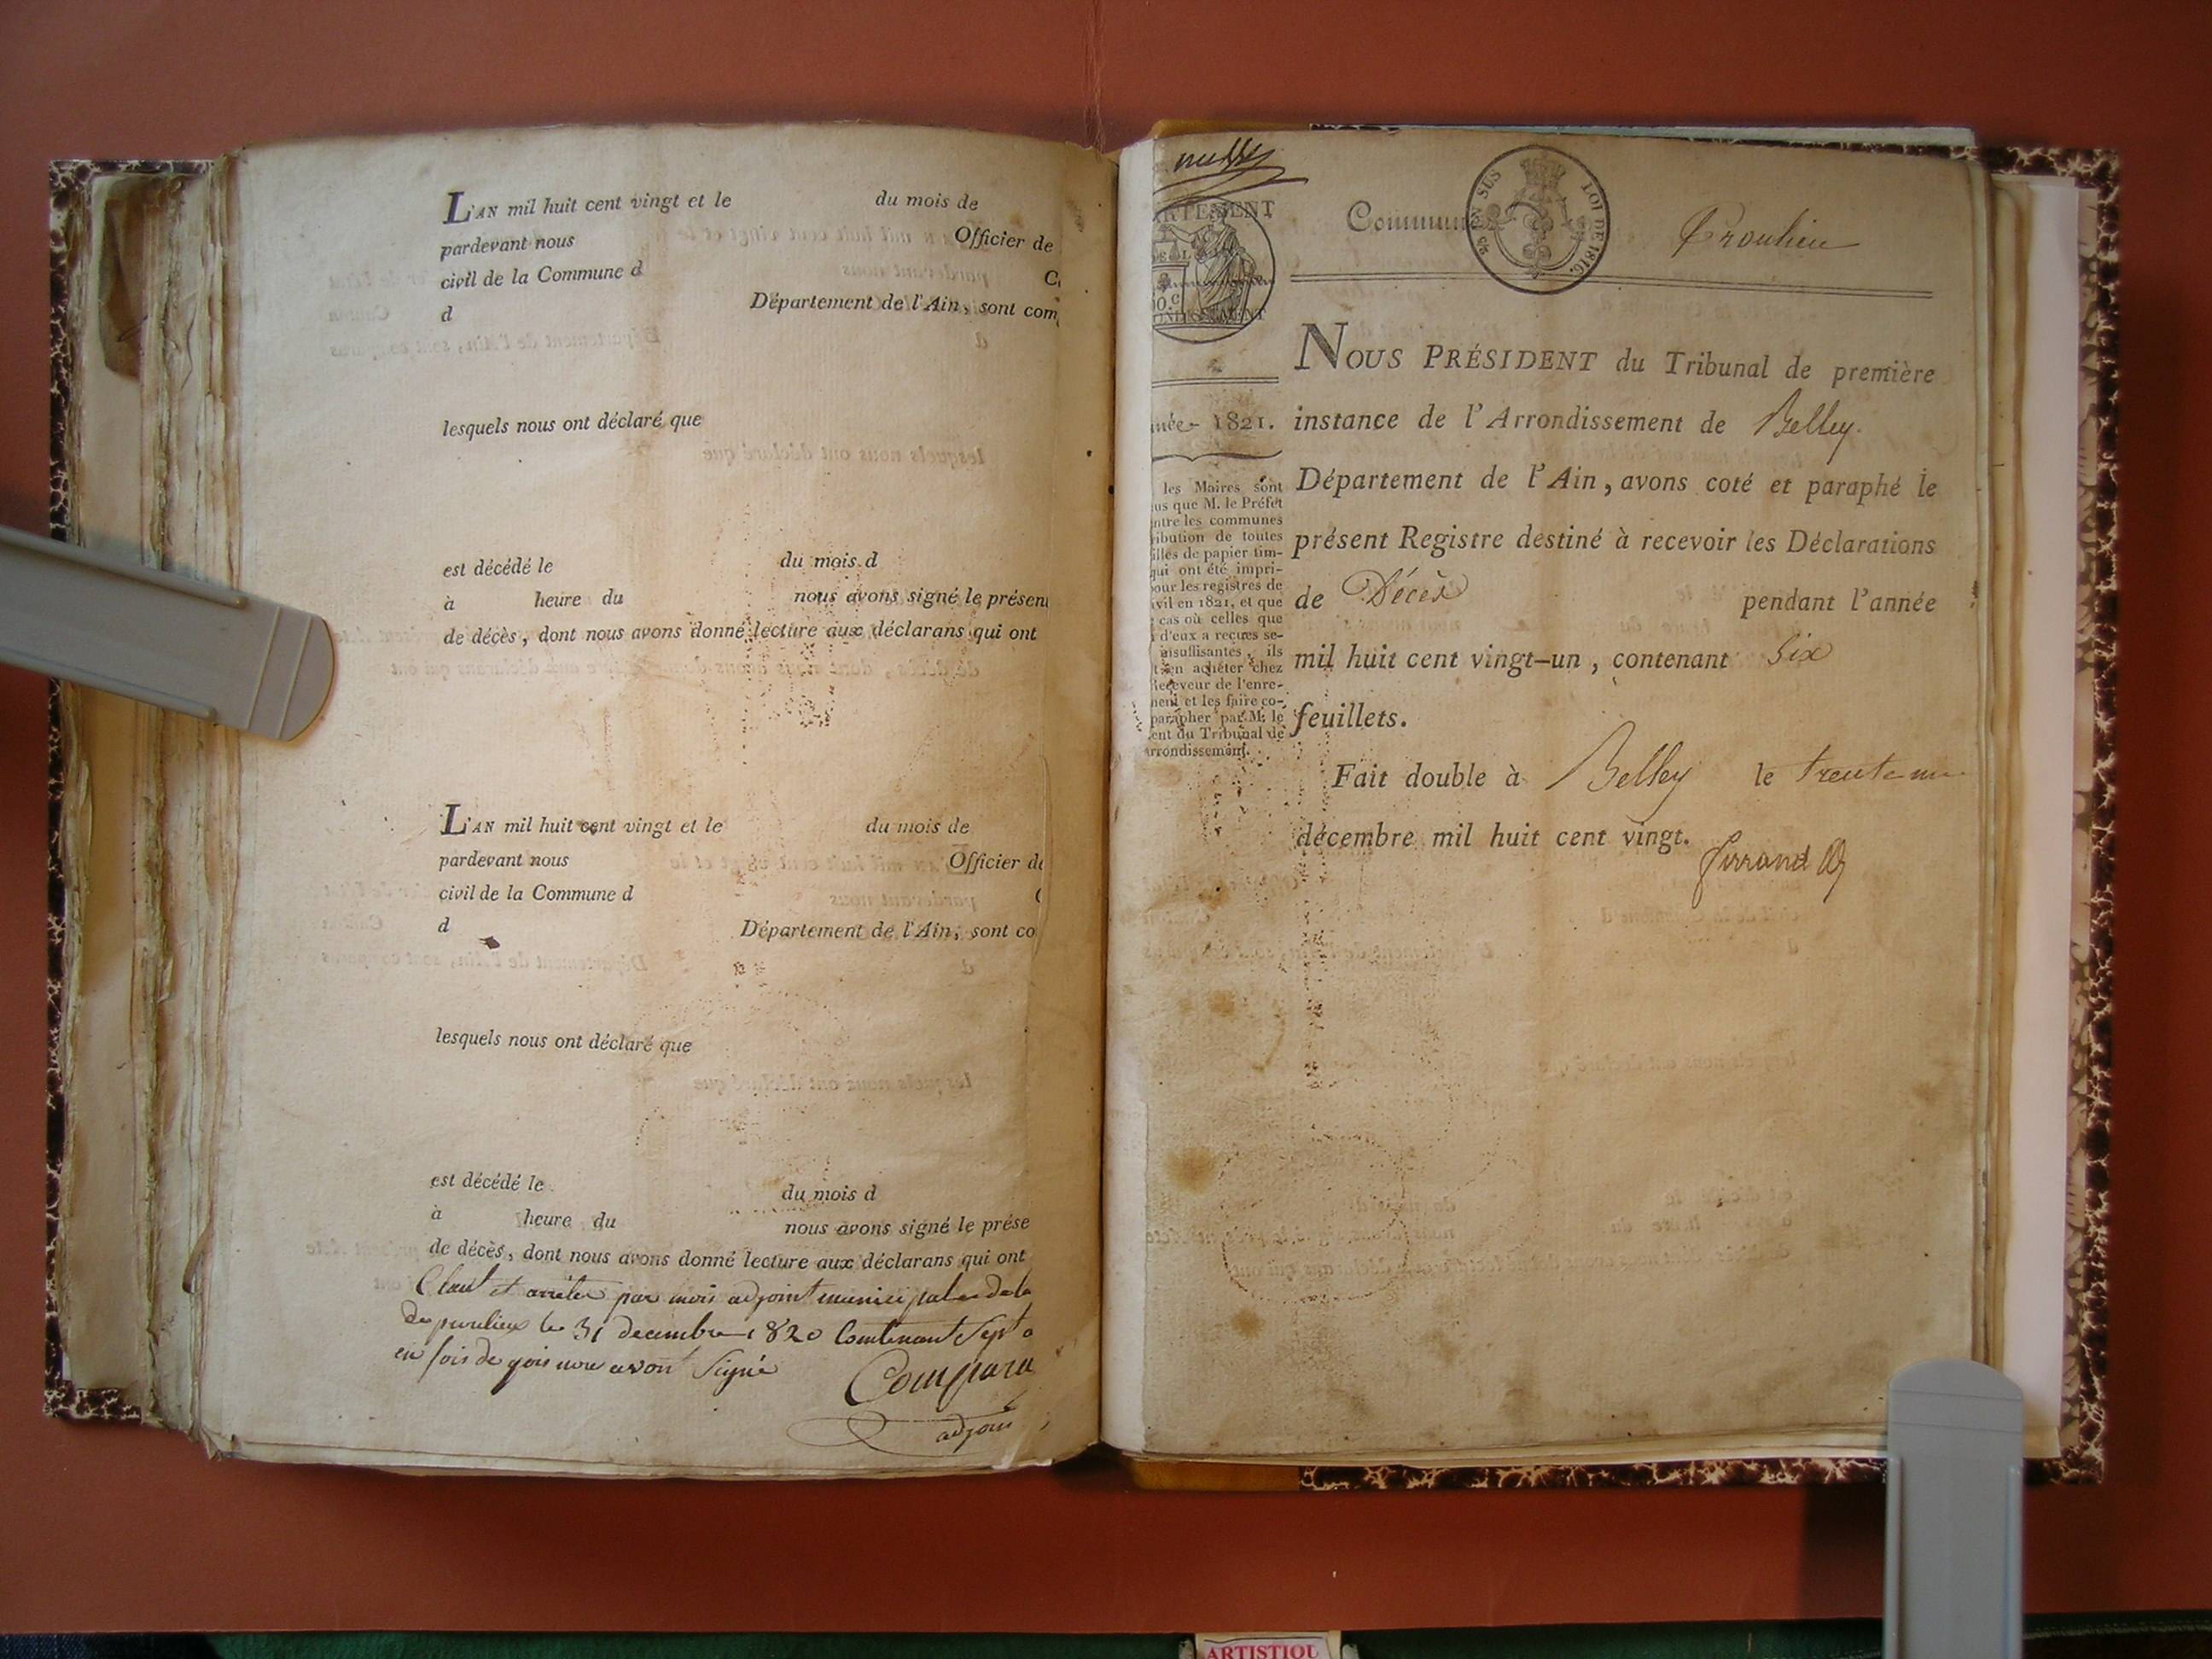 L'AN mil huit cent vingt et le du mois de
pardevant nous Officier de
civil de la Commune d
d Département de l'Ain, sont com
lesquels nous ont déclaré que
est décédé le du mois d
à heure du nous avons signé le présent
de décès, dont nous avons donné lecture aux déclarans qui ont
L'AN mil huit cent vingt et le du mois de
pardevant nous Officier de
civil de la Commune d
d Département de l'Ain, sont co
lesquels nous ont déclaré que
est décédé le du mois d
à heure du nous avons signé le prése
de décès, dont nous avons donné lecture aux déclarans qui ont
et arrêter par mois adjoint municipal de la
le 31 decembre 1820 Contenant Sept
en fois de qois nou avont Signé
adjoin
ARTEMENT
Commune
EN SUS
LOI DE 1816.
née 1821.
les Maires sont
us que M. le Préfet
ntre les communes
ribution de toutes
illes de papier tim-
qui ont été impri-
pour les registres de
ivil en 1821, et que
cas où celles que
d'eux a reçues se-
insuffisantes, ils
en acheter chez
Receveur de l'enre-
ment et les faire co-
parapher par M. le
ent du Tribunal de
rrondissement.
NOUS PRÉSIDENT du Tribunal de première
instance de l'Arrondissement de Belley.
Département de l'Ain, avons coté et paraphé le
présent Registre destiné à recevoir les Déclarations
de Décès pendant l'année
mil huit cent vingt-un, contenant Six
feuillets.
Fait double à Belley le trente un
décembre mil huit cent vingt.
ARTISTIQU